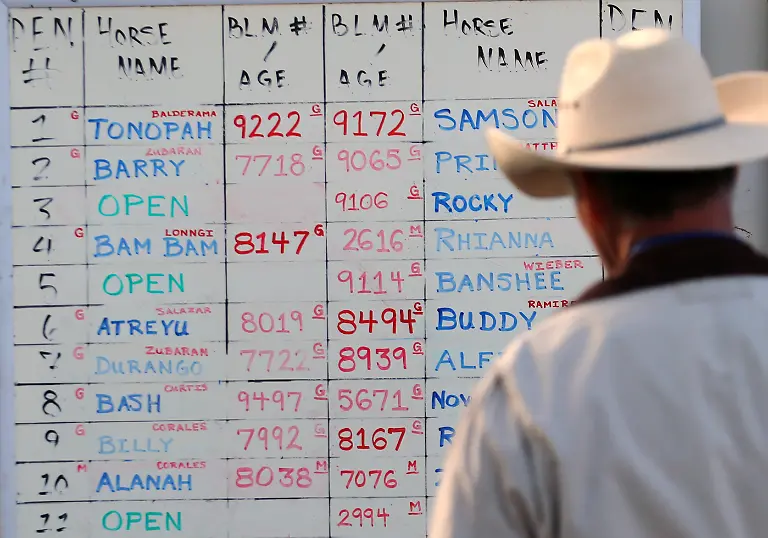 PEN # HORSE NAME BLM # / AGE BLM # / AGE HORSE NAME PEN
1 G TONOPAH BALDERAMA 9222 G 9172 G SAMSON
2 G BARRY ZUBARAN 7718 G 9065 G
3 OPEN 9106 G ROCKY
4 G BAM BAM LONNGI 8147 G 2616 M RHIANNA
5 OPEN 9114 G BANSHEE WIEBER
6 G ATREYU SALAZAR 8019 G 8494 G BUDDY
7 G DURANGO ZUBARAN 7722 G 8939 G
8 G BASH CURTIS 9497 G 5671 G
9 G BILLY CORALES 7992 G 8167 G
10 M ALANAH CORALES 8038 M 7076 M
11 OPEN 2994 M